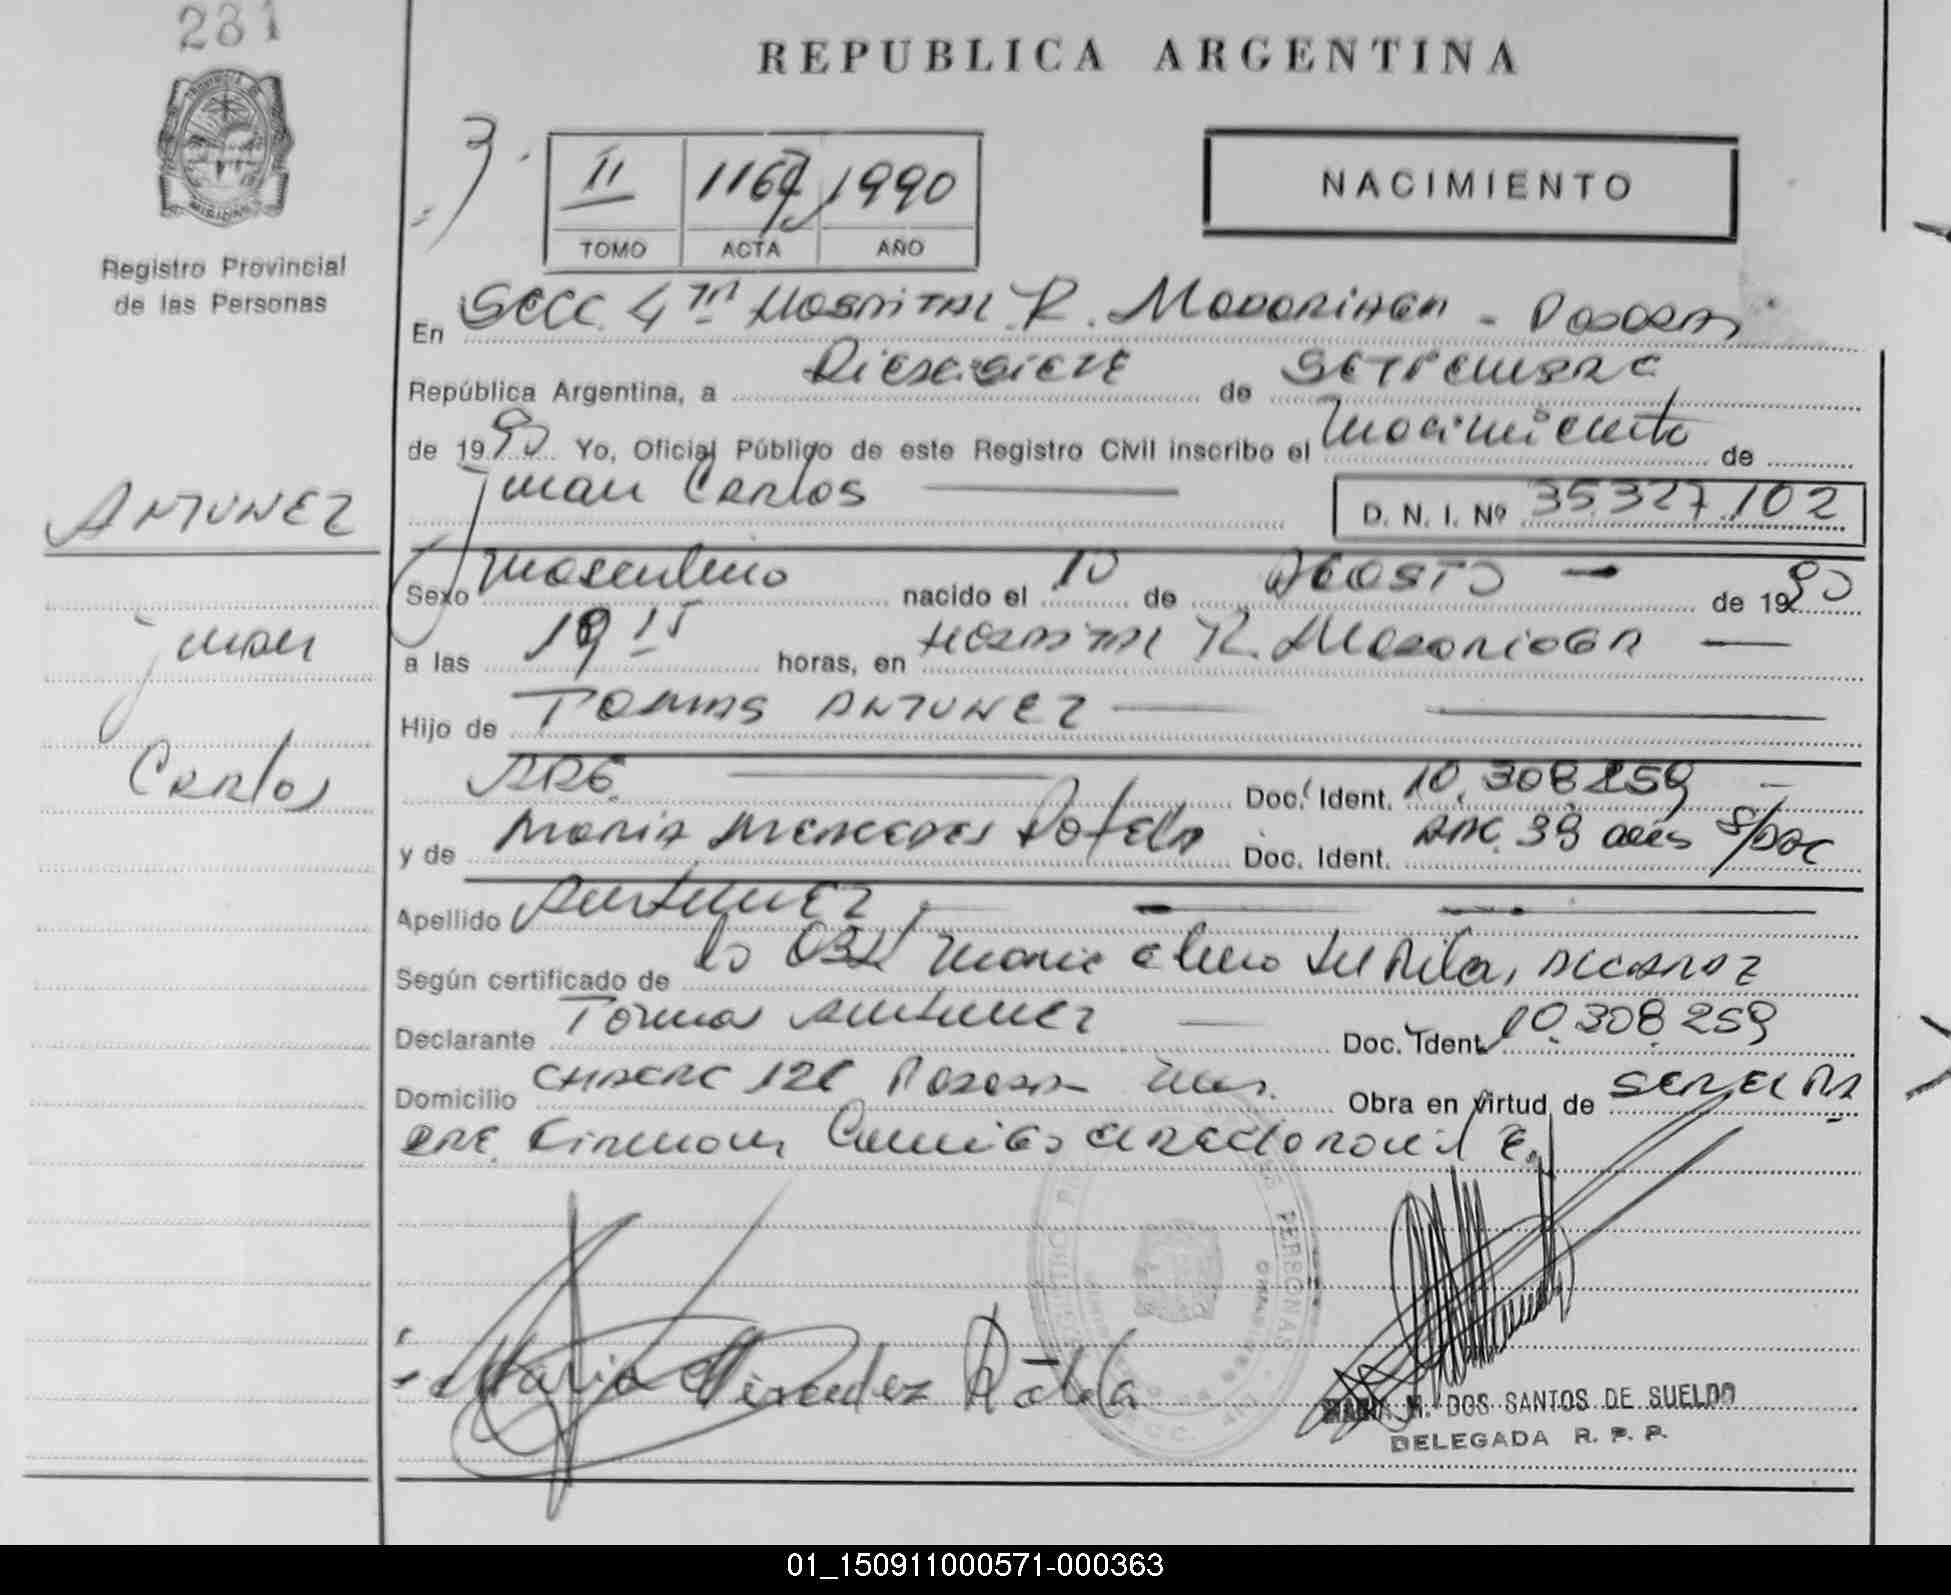 231
REPUBLICA ARGENTINA
Registro Provincial
de las Personas
II 1990
TOMO ACTA AÑO
NACIMIENTO
En SECC. 4ta HOSPITAL R. MADARIAGA - POSADAS
República Argentina, a Diesisiete de SETIEMBRE
de 1990 Yo, Oficial Público de este Registro Civil inscribo el nacimiento de
Juan Carlos D. N. I. Nº 35.327.102
ANTUNEZ
Juan
Carlos
Sexo masculino nacido el 10 de AGOSTO — de 1990
a las 19 15 horas, en HOSPITAL R. MADARIAGA —
Hijo de TOMAS ANTUNEZ —
ARG. — Doc. Ident. 10.308 259 —
y de MARIA MERCEDES Doc. Ident. ARG. 39 años S/DOC
Apellido ANTUNEZ —
Según certificado de la OBST Maria
Declarante Tomas Antunez — Doc. Ident. 10.308 259
Domicilio CHACRA POSADAS Mnes. Obra en virtud de
ARG. Firman
REGISTRO PERSONAS
MARIA M. DOS SANTOS DE SUELDO
DELEGADA R. P. P.
01_150911000571-000363